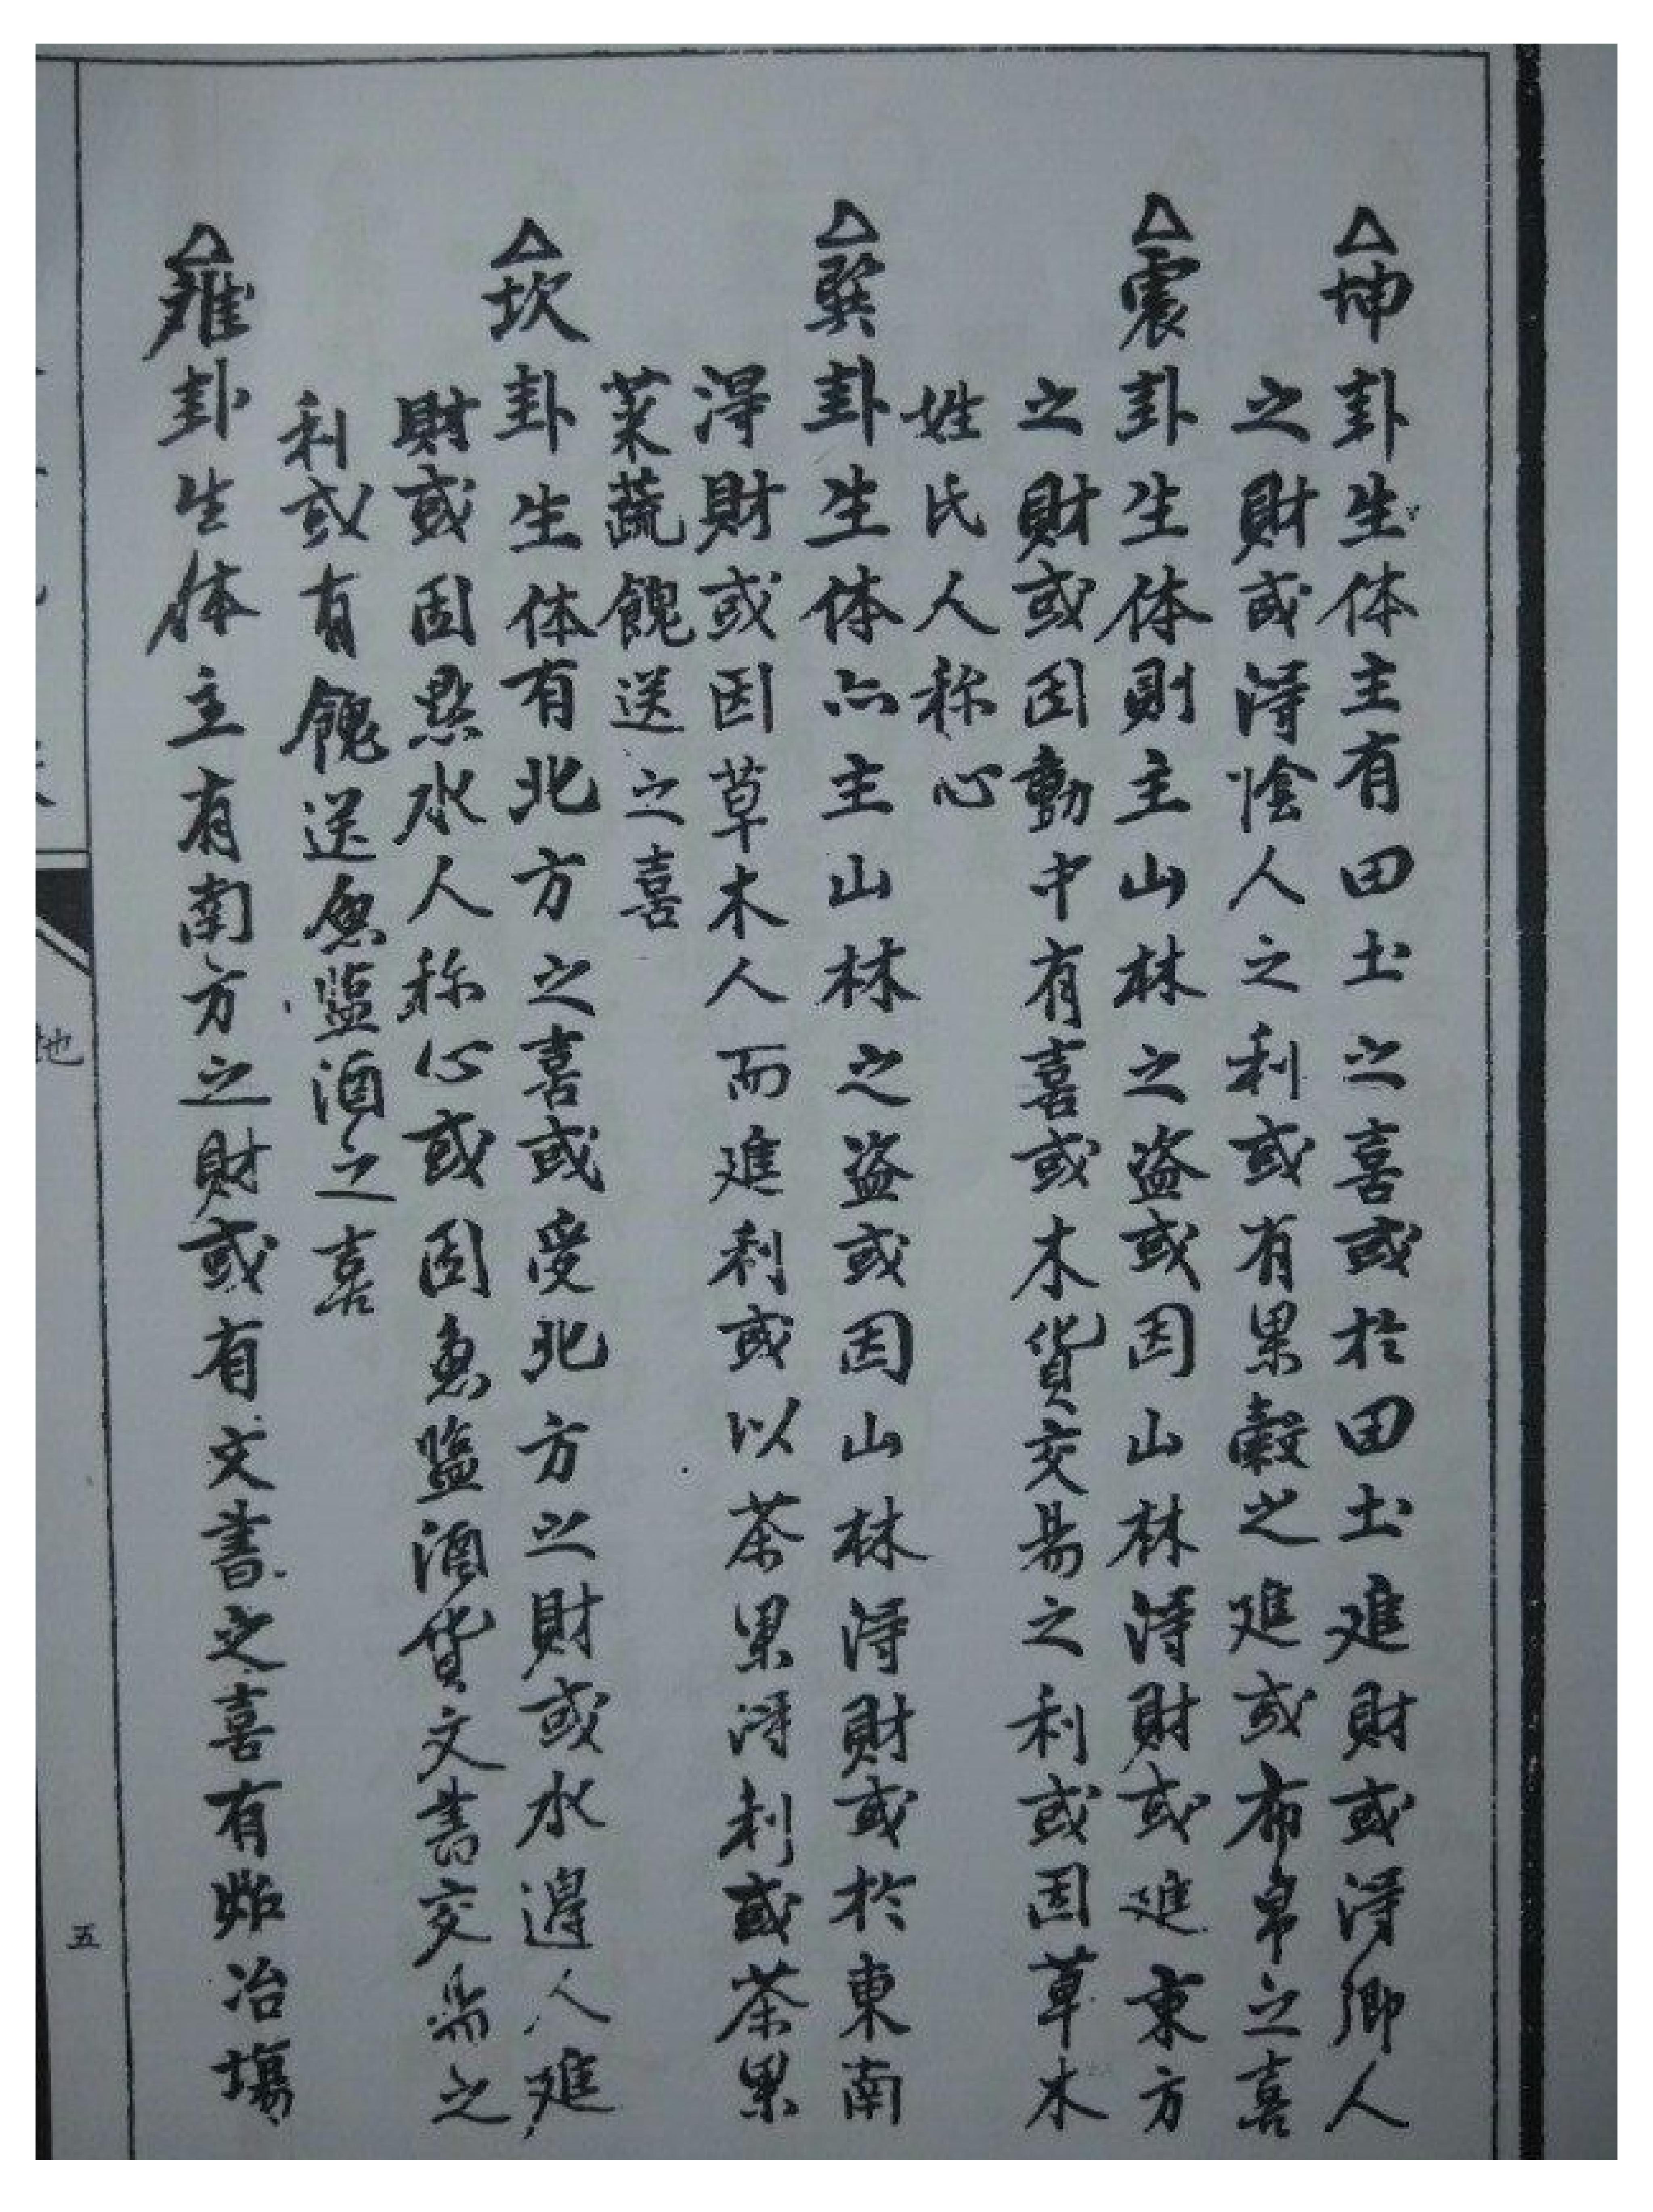 △坤卦生体主有田土之喜或於田土進財或得鄉人
之財或得陰人之利或有果穀之進或布帛之喜
△震卦生体則主山林之盗或因山林得財或進東方
之財或因動中有喜或木貨交易之利或因草木
姓氏人称心
△巽卦生体亦主山林之盗或因山林得財或於東南
得財或因草木人而進利或以茶果得利或茶果
菜蔬餽送之喜
△坎卦生体有北方之喜或受北方之財或水邊人進
財或因點水人称心或因魚盐酒貨文書交易之
利或有餽送魚盐酒之喜
△離卦生体主有南方之財或有文書之喜有炉冶塲
地
五